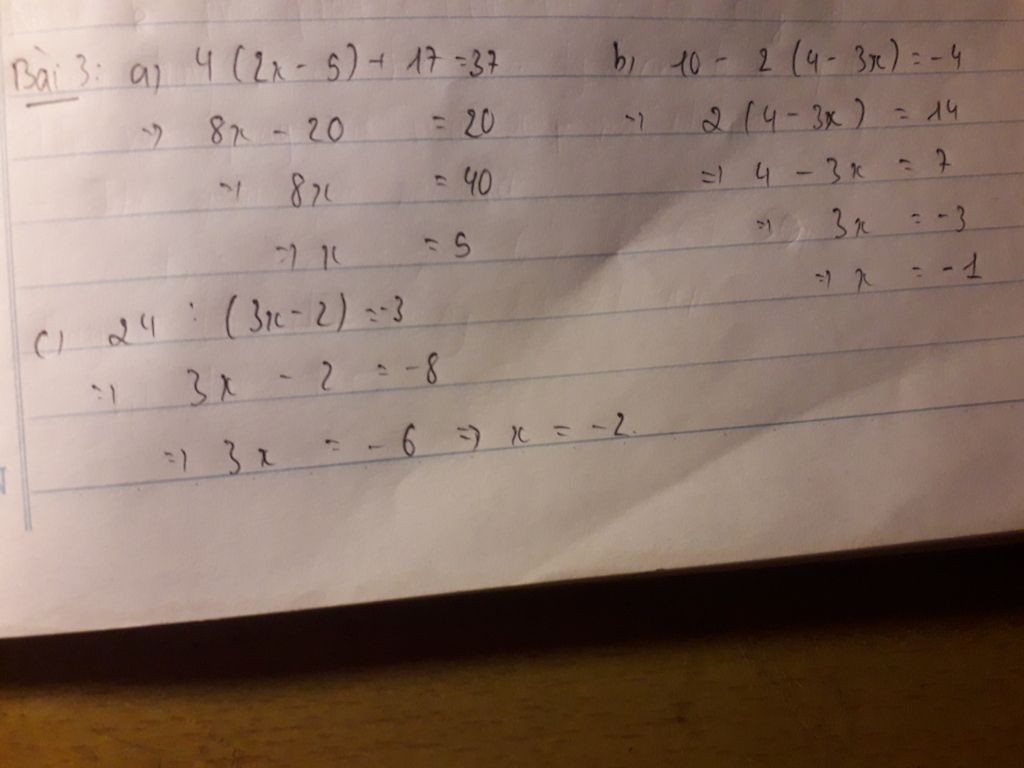 Bài 3: a) 4 (2x - 5) + 17 = 37
=> 8x - 20 = 20
=> 8x = 40
=> x = 5
b) 10 - 2 (4 - 3x) = -4
=> 2 (4 - 3x) = 14
=> 4 - 3x = 7
=> 3x = -3
=> x = -1
c) 24 : (3x - 2) = -3
=> 3x - 2 = -8
=> 3x = -6 => x = -2.